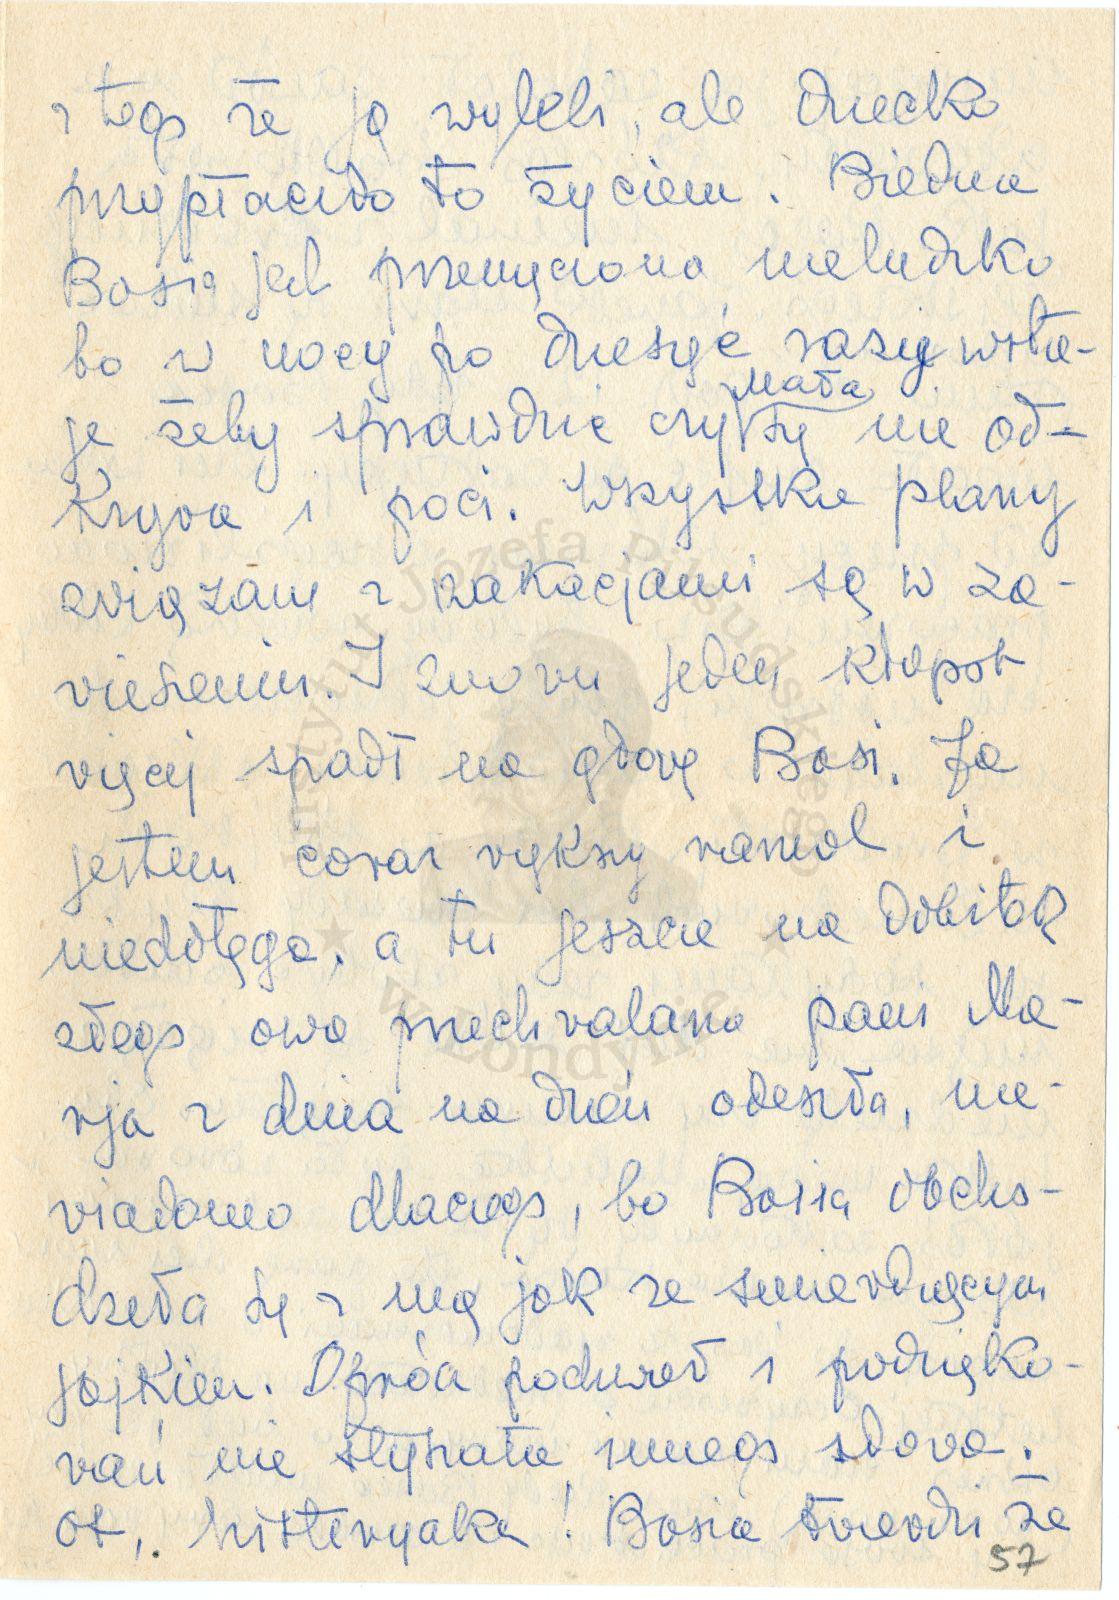 z tego że ją wyleli, ale dziecko
przypłaciło to życiem. Biedna
Bosia jest przemęczona nieludzko
bo w nocy po dziesięć razy wsta-
je żeby sprawdzić czy mała się nie od-
krywa i poci. Wszystkie plany
związane z wakacjami są w za-
wieszeniu. I znowu jeden kłopot
więcej spadł na głowę Bosi. Ja
jestem coraz większy ramol i
niedołęga, a tu jeszcze na dobitek
złego owa przechwalana pani Ma-
rja z dnia na dzień odeszła, nie-
wiadomo dlaczego, bo Bosia obcho-
dziła się z nią jak ze śmierdzącym
jajkiem. Oprócz pochwał i podzięko-
wań nie słyszała innego słowa.
Ot, histeryczka! Bosia twierdzi że
57
Instytut Józefa Piłsudskiego
w Londynie